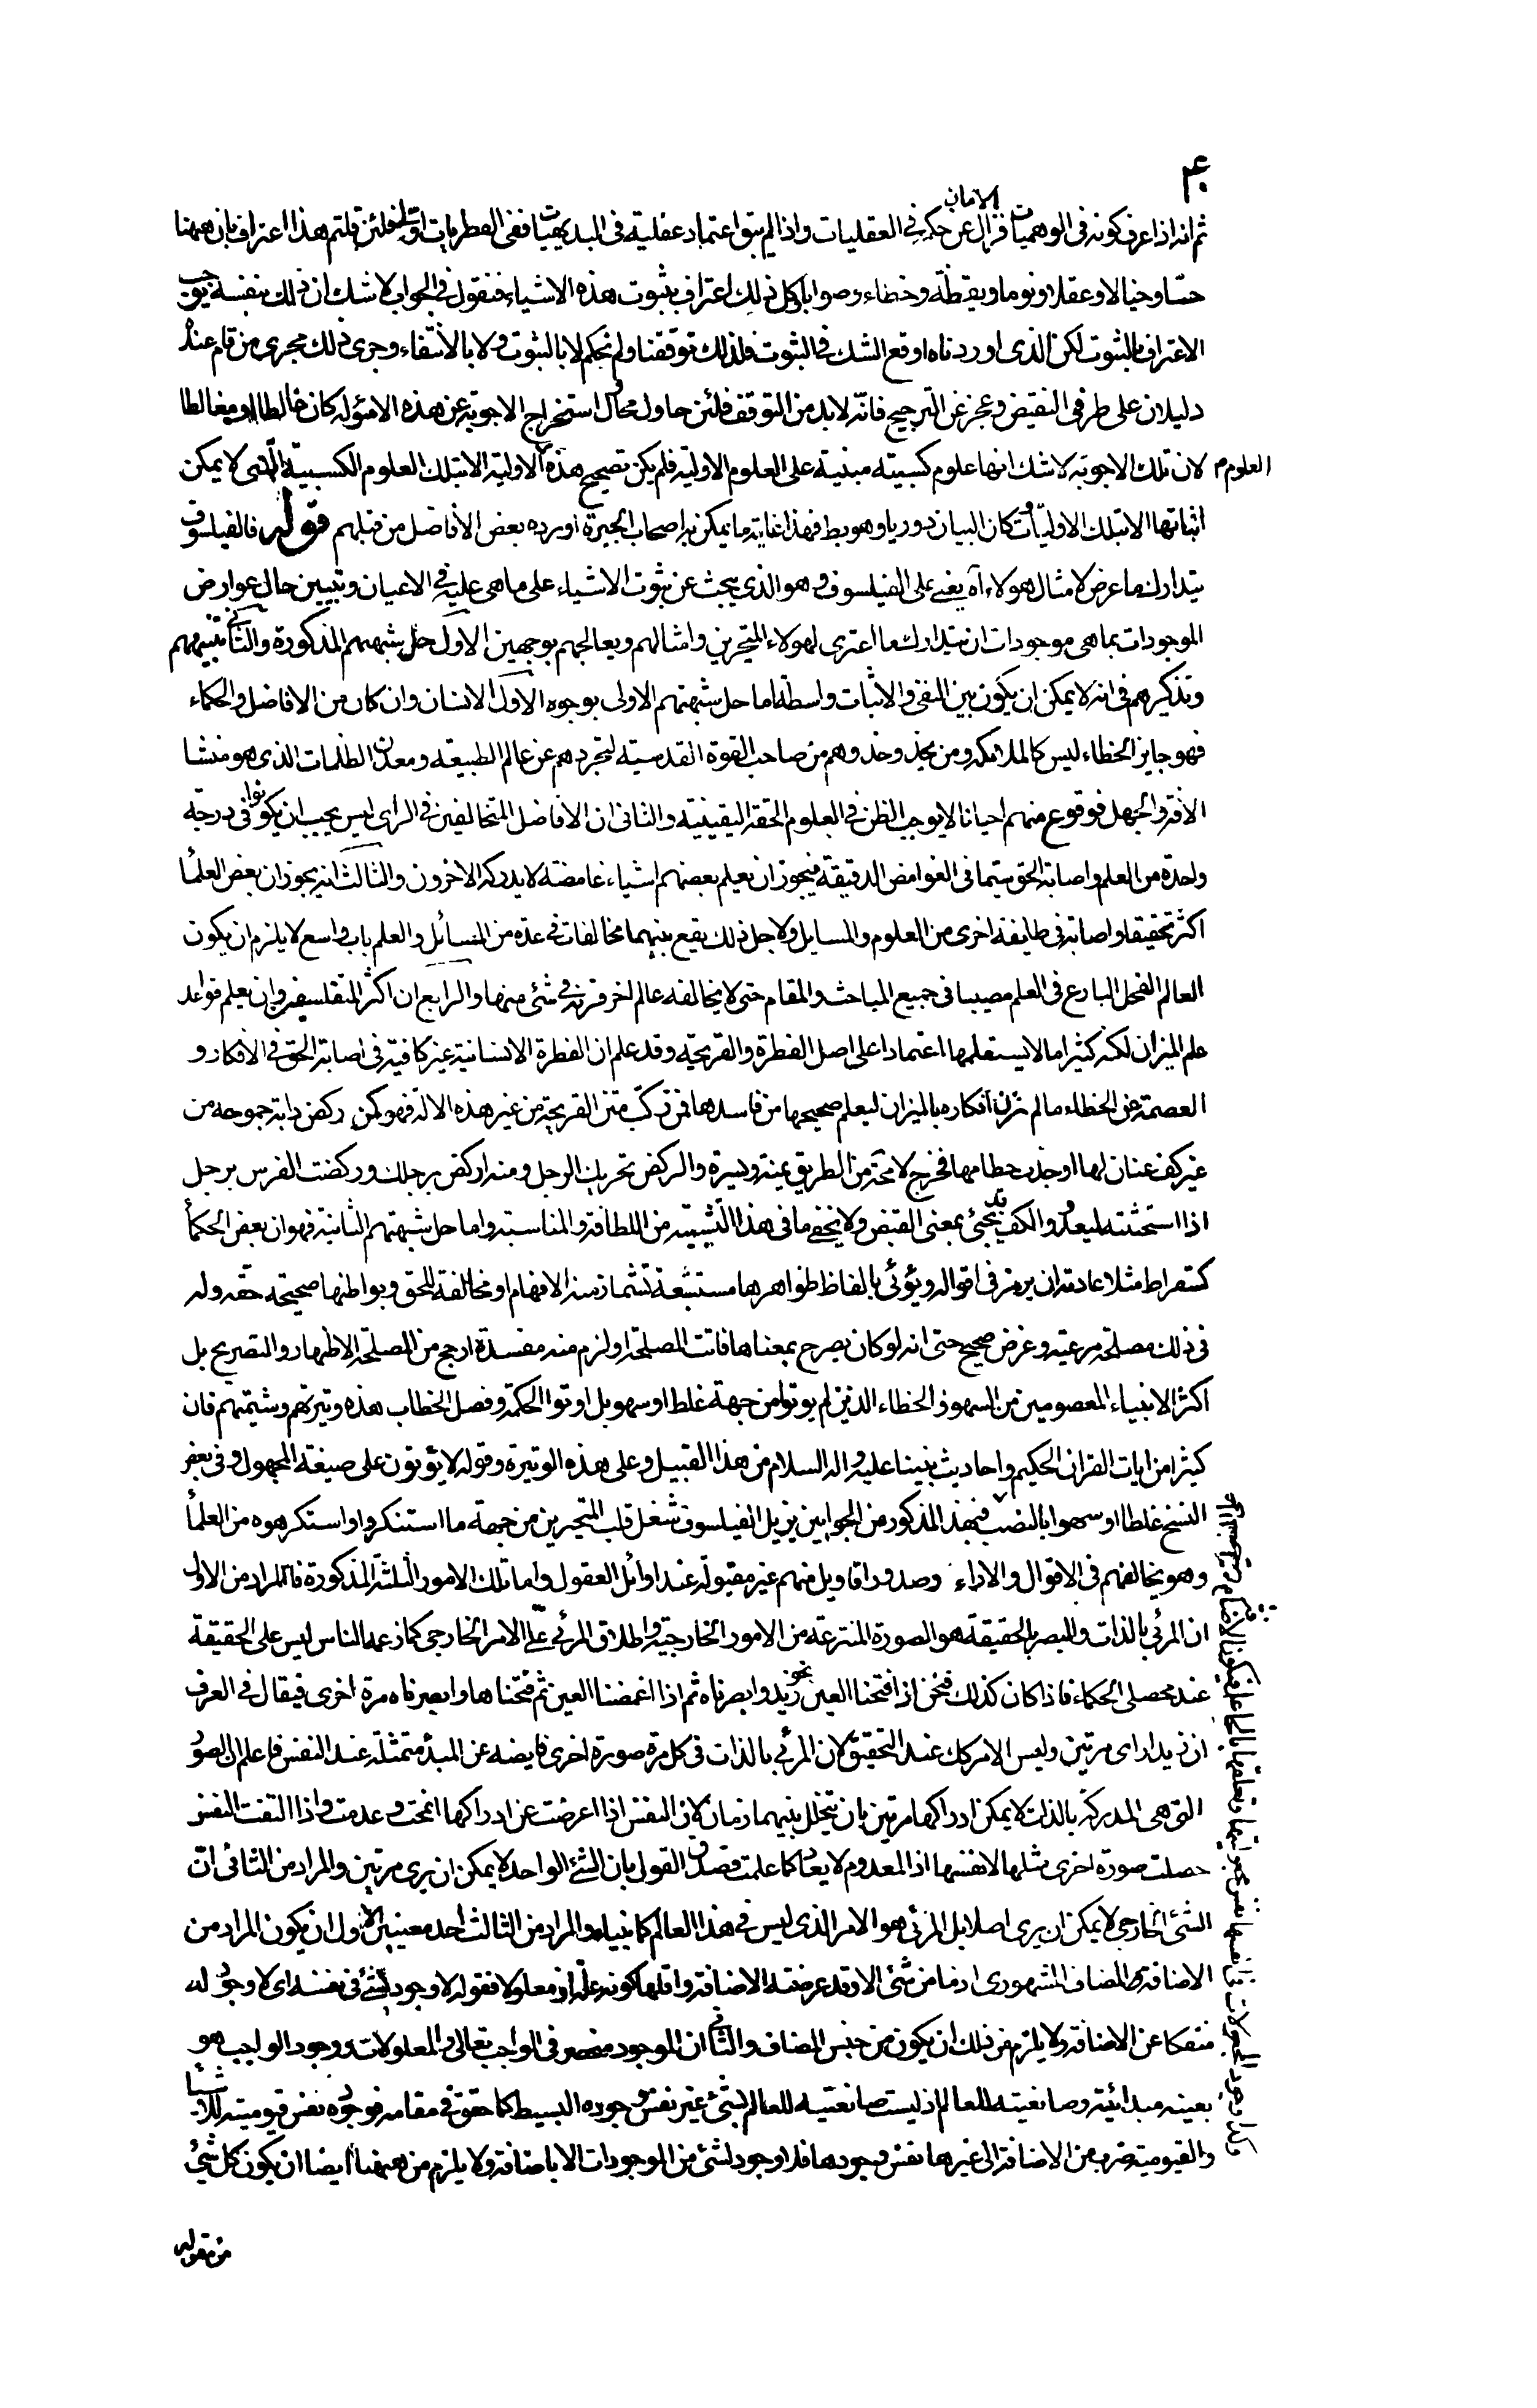 ۴۰
الامان
ثم انه اذا عرف كونه فى الوهميات فزال عن حكمه فى العقليات واذا لم يبق اعتماد عقلية فى البديهيات ففى الفطريات فلئن قلتم هذا اعتراف بان ههنا
حسا وخيالا وعقلا ونوما ويقظة وخطاء وصوابا وكل ذلك اعتراف بثبوت هذه الاشياء فنقول فى الجواب لا شك ان ذلك بنفسه يوجب
الاعتراف بالثبوت لكن الذى اوردناه اوقع الشك فى الثبوت فلذلك توقفنا ولم نحكم لا بالثبوت ولا بالانتفاء وجرى ذلك مجرى من قام عنده
دليلان على طرفى النقيض وعجز عن الترجيح فانه لا بد من التوقف فلئن حاول محاول استخراج الاجوبة عن هذه الاسؤله كان خالطا او مغالطا
لان تلك الاجوبة لا شك انها علوم كسبية مبنية على العلوم الاولية فلم يكن تصحيح هذه العلوم الاولية الا بتلك العلوم الكسبية التى لا يمكن
اثباتها الا بتلك الاوليات كان البيان دوريا وهو بط فهذا غاية ما يمكن به اصحاب الحيرة اورده بعض الافاضل من قبلهم قوله فالفيلسوف
يتدارك ما عرض لامثال هولاء آه يعنى على الفيلسوف وهو الذى يبحث عن ثبوت الاشياء على ما هى عليه فى الاعيان وتبيين حال عوارض
الموجودات بما هى موجودات ان يتدارك ما اعترى لهولاء المتحيرين وامثالهم ويعالجهم بوجهين الاول حل شبههم المذكورة والثانى تنبيههم
وتذكيرهم فى انه لا يمكن ان يكون بين النفى والاثبات واسطة اما حل شبهتهم الاولى بوجوه الاول الانسان وان كان من الافاضل والحكماء
فهو جايز الخطاء ليس كالملائكه ومن يحذو حذوهم من صاحب القوة القدسية لتجردهم عن عالم الطبيعه ومعدن الظلمات الذى هو منشا
الافة والجهل فوقوع منهم احيانا لا يوجب الظن فى العلوم الحقة اليقينية والثانى ان الافاضل المتخالفين فى الراى ليس يجب ان يكونوا فى درجة
واحدة من العلم واصابة الحق سيما فى الغوامض الدقيقة فيجوز ان يعلم بعضهم اشياء غامضة لا يدركه الاخرون والثالث انه يجوز ان بعض العلما
اكثر تحقيقا واصابة فى طايفة اخرى من العلوم والمسايل ولاجل ذلك يقع بينهما مخالفات فى عدة من المسائل والعلم باب واسع لا يلزم ان يكون
العالم الفحل البارع فى العلم مصيبا فى جميع المباحث والمقام حتى لا يخالفه عالم اخر قرنه فى شئ منها والرابع ان اكثر المتفلسفين وان يعلم قواعد
علم الميزان لكنه كثيرا ما لا يستعملها اعتمادا على اصل الفطرة والقريحة وقد علم ان الفطرة الانسانية غير كافية فى اصابة الحق فى الافكار و
العصمة عن الخطاء ما لم تزن افكاره بالميزان ليعلم صحيحها من فاسدها فمن ركب متن القريحة من غير هذه الالة فهو كمن ركض دابة جموحه من
غير كف عنان لها او جذب خطامها فخرج لا محة من الطريق يمنة ويسرة والركض تحريك الرجل ومنه اركض برجلك وركضت الفرس برجلى
اذا استحثته ليعدو والكف قد يجئ بمعنى القبض ولا يخفى ما فى هذا التشبيه من اللطافة والمناسبة واما حل شبهتهم الثانية فهو ان بعض الحكما
كسقراط مثلا عادته ان يرمز فى اقواله ويؤتى بالفاظ ظواهرها مستبشعة تشمازمنه الافهام او مخالفة للحق وبواطنها صحيحة حقه وله
فى ذلك مصلحة مرعية وغرض صحيح حتى انه لو كان يصرح بمعناها فاتت المصلحة او لزم منه مفسدة ارجح من المصلحة الاظهار والتصريح بل
اكثر الانبياء المعصومين من السهو والخطاء الذين لم يوتوا من جهة غلط او سهو بل اوتوا الحكمة وفصل الخطاب هذه وتيرتهم وشيمتهم فان
كثيرا من ايات القران الحكيم واحاديث نبينا عليه واله السلام من هذا القبيل وعلى هذه الوتيرة وقوله لا يؤتون على صيغة المجهول وفى بعض
النسخ غلطا او سهوا بالنصب فبهذ المذكور من الجوابين يزيل الفيلسوف شغل قلب المتحيرين من جهة ما استنكروا واستكرهوه من العلما
وهو تخالفهم فى الاقوال والاراء وصدور اقاويل منهم غير مقبولة عند اوائل العقول واما تلك الامور الثلثة المذكورة فالمراد من الاول
ان المرئى بالذات والمبصر بالحقيقة هو الصورة المنتزعة من الامور الخارجية واطلاق المرئى على الامر الخارجى كما زعمه الناس ليس على الحقيقة
عند محصلى الحكماء فاذا كان كذلك فنحن اذا فتحنا العين نحو زيد وابصرناه ثم اذا اغمضنا العين ثم فتحناها وابصرناه مرة اخرى فيقال فى العرف
ان زيدا راى مرتين وليس الامر كك عند التحقيق لان المرئى بالذات فى كل مرة صورة اخرى فايضه عن المبدء متمثلة عند النفس فاعلم ان الصور
التى هى المدركة بالذات لا يمكن ادراكها مرتين بان يتخلل بينهما زمان لان النفس اذا اعرضت عن ادراكها انمحت وعدمت واذا التفت النفس
حصلت صورة اخرى مثلها لا نفسها اذ المعدوم لا يعاد كما علمت فصدق القول بان الشئ الواحد لا يمكن ان يرى مرتين والمراد من الثانى ان
الشئ الخارجى لا يمكن ان يرى اصلا بل المرئى هو الامر الذى ليس فى هذا العالم كما بيناه والمراد من الثالث احد معنيين الاول ان يكون المراد من
الاضافة المضاف المشهورى اذ ما من شئ الا وقد عرضت له الاضافة واقلها كونه علة او معلولا فقوله لا وجود لشئ فى نفسه اى لا وجود له
منفكا عن الاضافة ولا يلزم من ذلك ان يكون من جنس المضاف والثانى ان الموجود منحصر فى الواجب تعالى والمعلولات ووجود الواجب هو
بعينه مبدائية وصانعيته للعالم اذ ليست صانعتيه للعالم بشئ غير نفس وجوده البسيط كما حقق فى مقامه فوجوده نفس قيوميته للاشيا
والقيومية ضرب من الاضافة الى غيرها نفس وجودها فلا وجود لشئ من الموجودات الا باضافة ولا يلزم من ههنا ايضا ان يكون كل شئ
وكذا وجود المجعولات فى انفسها نفس مجعوليتها وتعلقها بالجاعل فيكون الاضافة
من مقوله